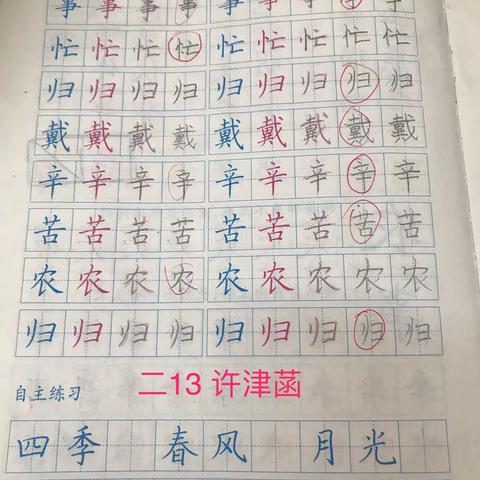 事事事事 事事事事事
忙忙忙忙 忙忙忙忙忙
归归归归 归归归归归
戴戴戴戴 戴戴戴戴戴
辛辛辛辛 辛辛辛辛辛
苦苦苦苦 苦苦苦苦苦
农农农农 农农农农农
归归归归 归归归归归
二13 许津菡
自主练习
四季 春风 月光